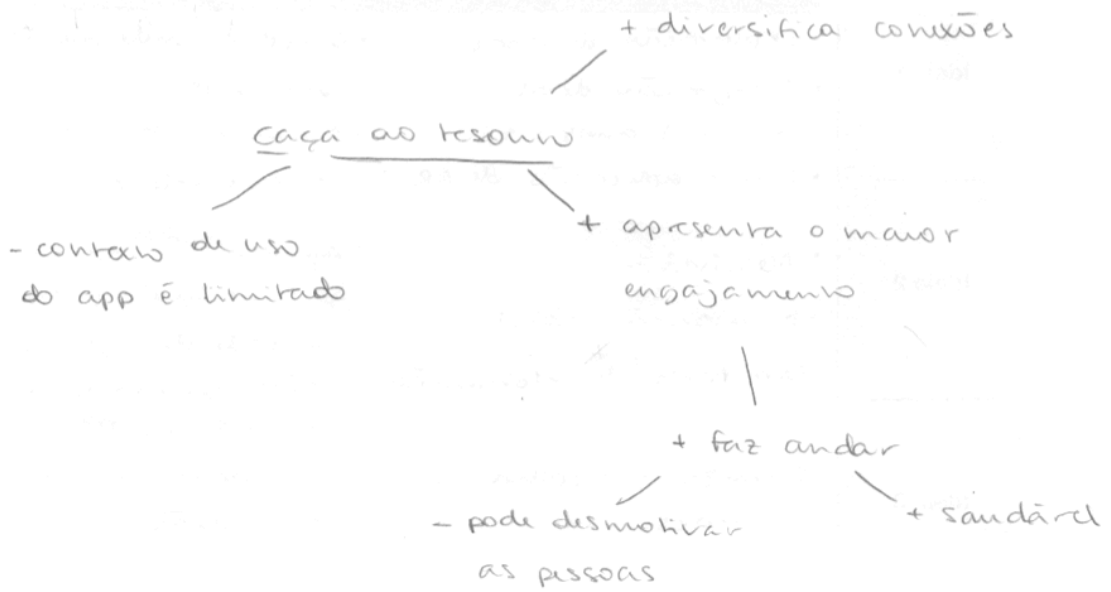 + diversifica conexões
caça ao tesouro
- contexto de uso
do app é limitado
+ apresenta o maior
engajamento
+ faz andar
- pode desmotivar
as pessoas
+ saudável